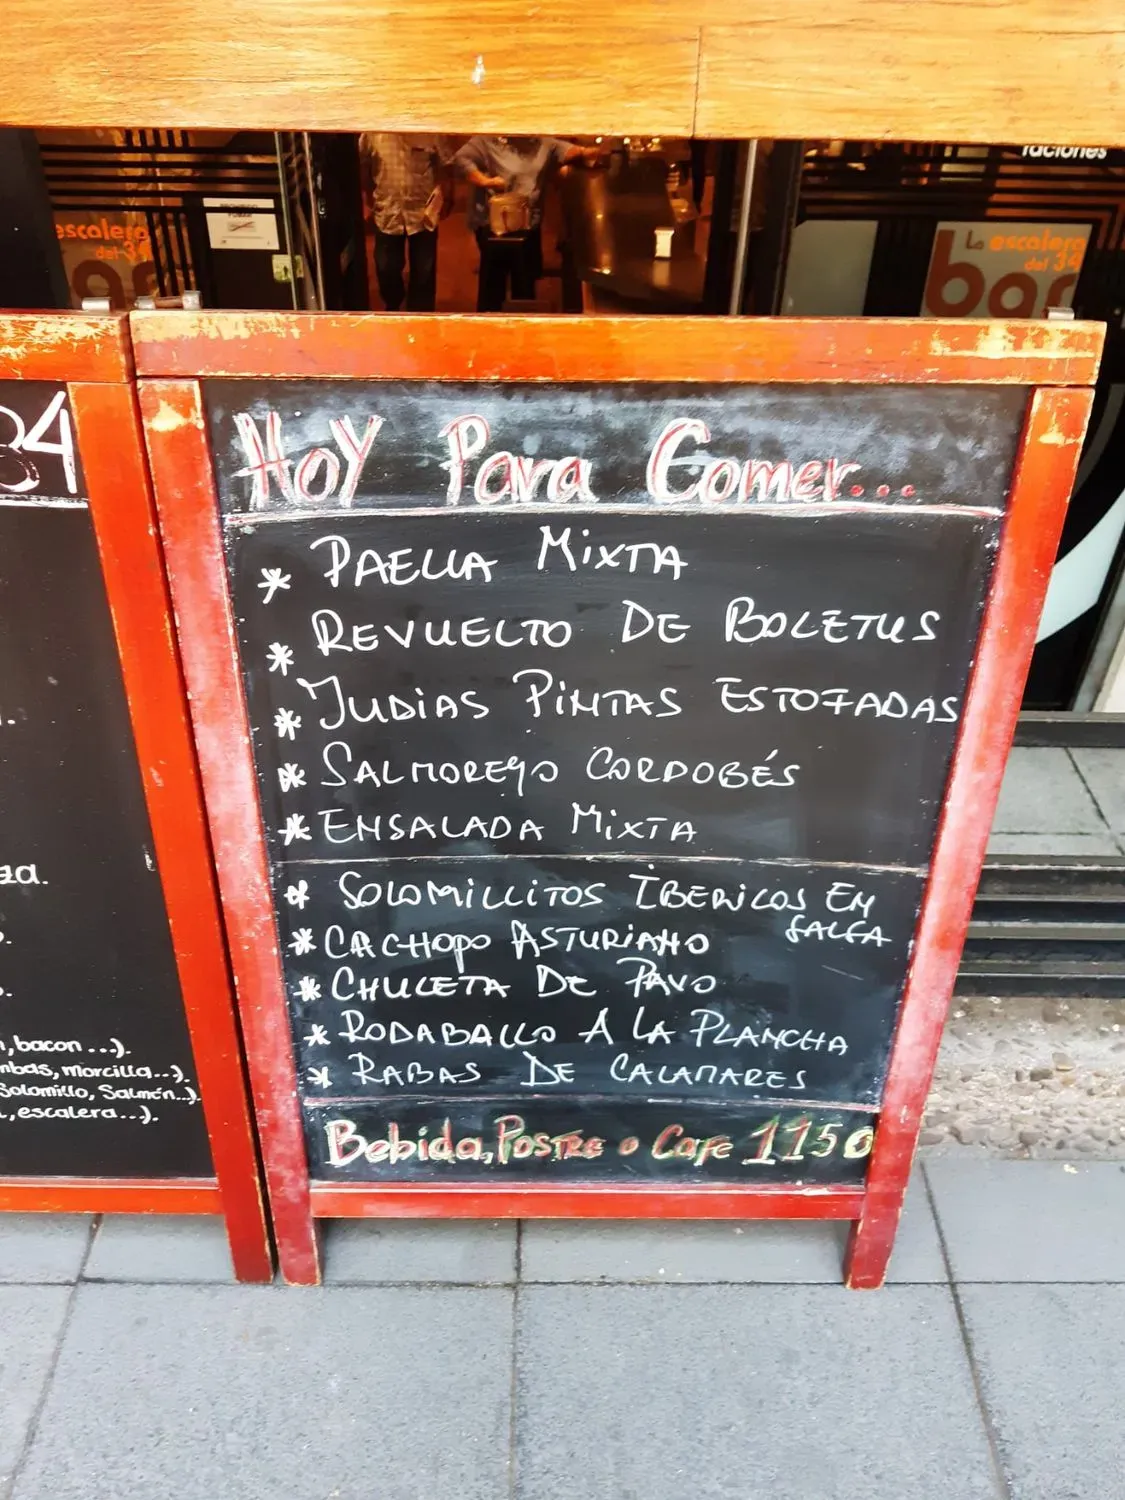 raciones
PROHIBIDO
FUMAR
escalera
del 34
bar
La escalera
del 34
bar
34
HOY Para Comer...
* PAELLA MIXTA
* REVUELTO DE BOLETUS
* JUDIAS PINTAS ESTOFADAS
* SALMOREJO CORDOBÉS
* ENSALADA MIXTA
* SOLOMILLITOS IBERICOS EN
SALSA
* CACHOPO ASTURIANO
* CHULETA DE PAVO
* RODABALLO A LA PLANCHA
* RABAS DE CALAMARES
Bebida, Postre o Cafe 1150
za.
,bacon...).
mbas, morcilla..).
Solomillo, Salmón..).
,escalera...).